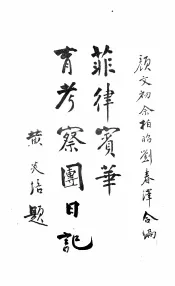 顏文初佘柏昭劉春澤合編
菲律賓華
青考察團日記
黃炎培題